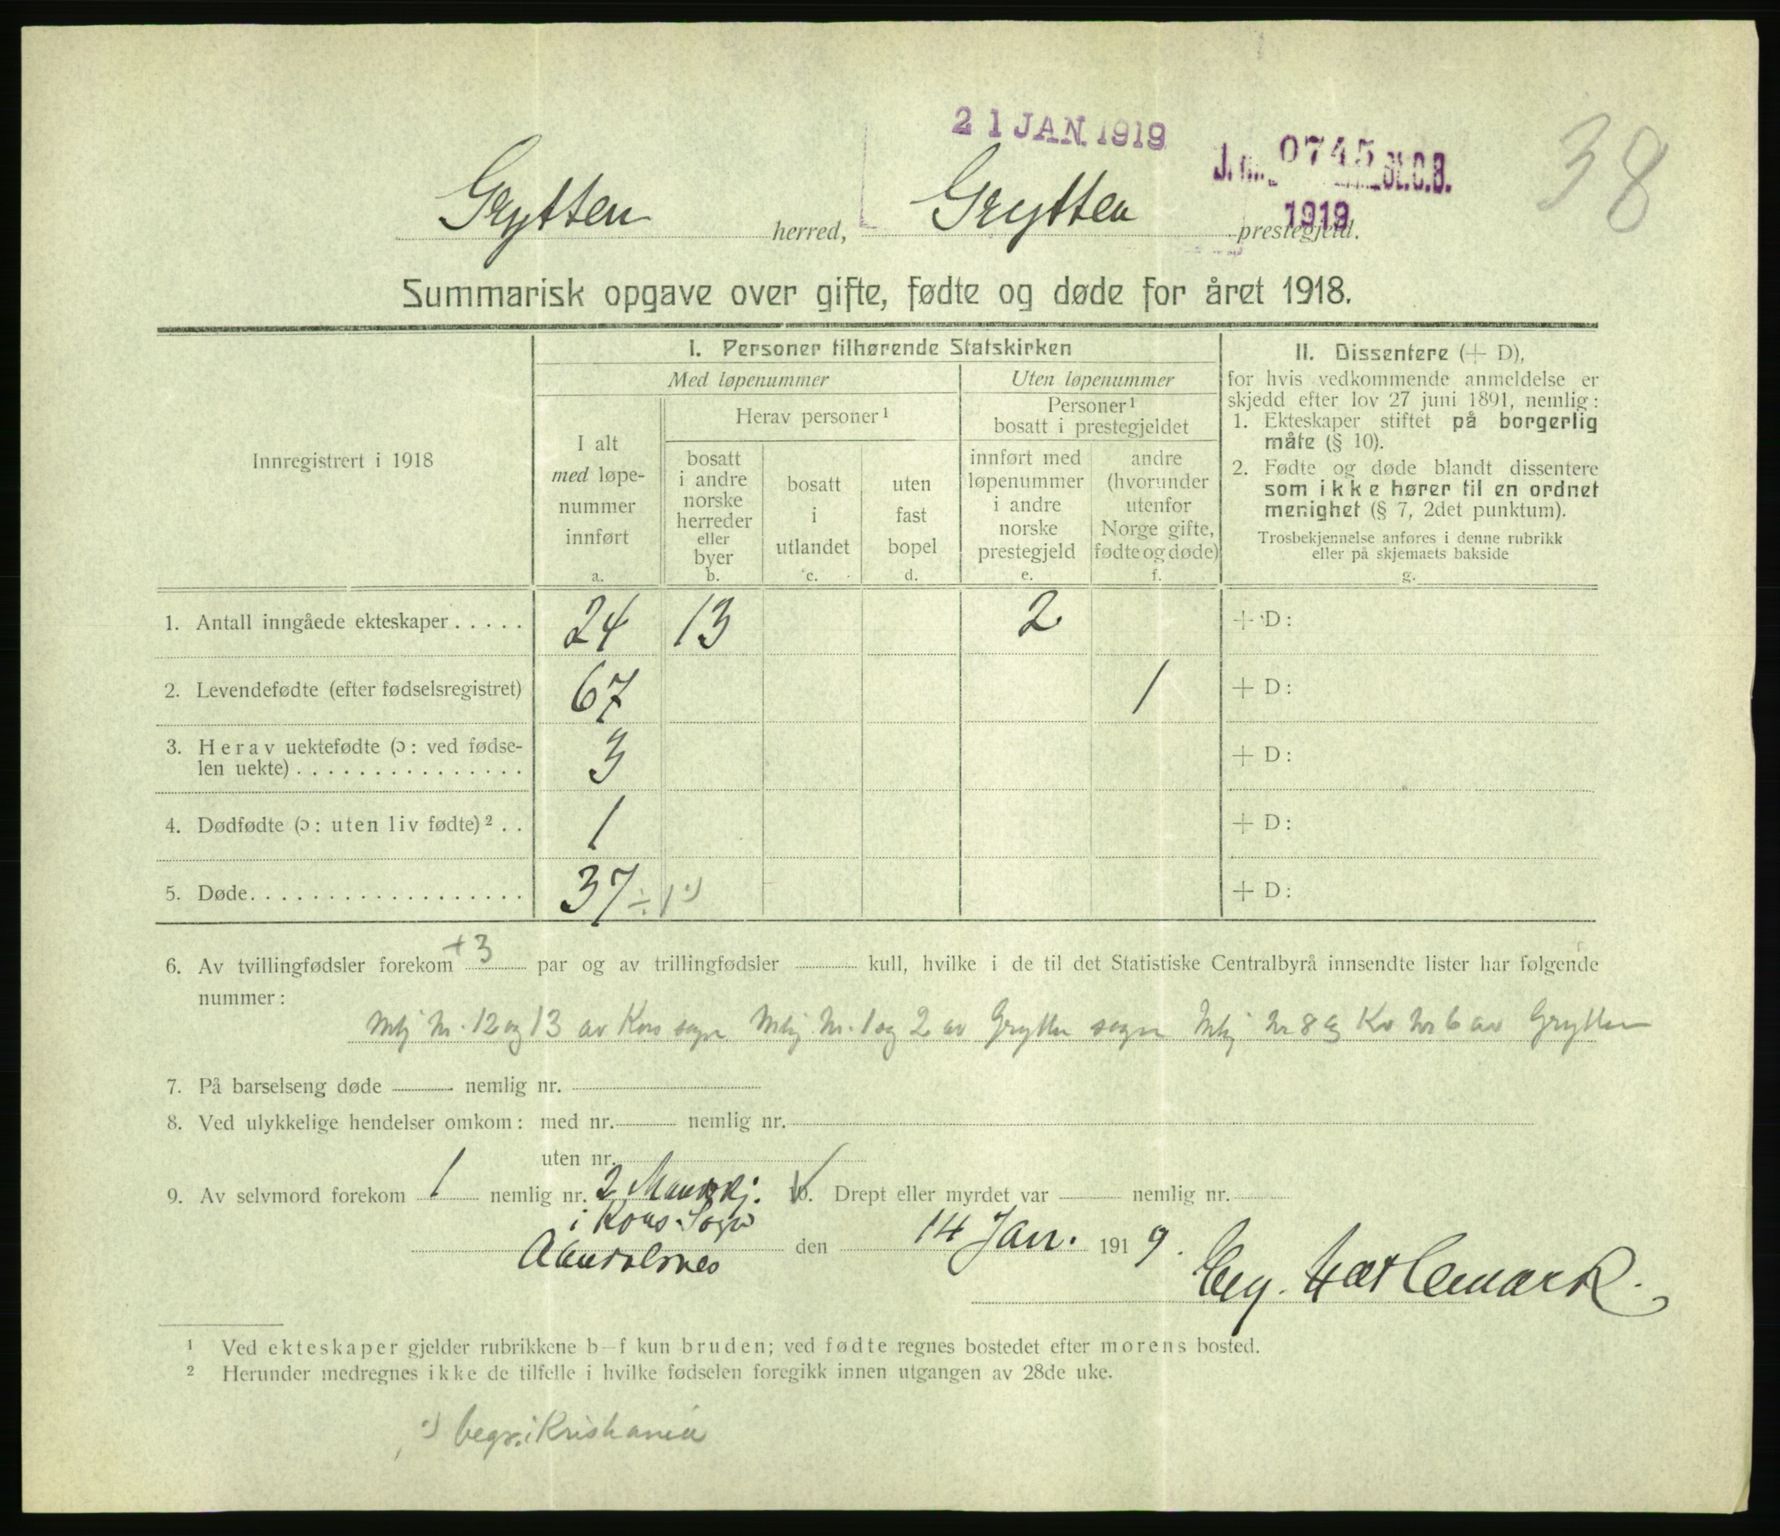 21 JAN. 1919
0745
J. St.C.B.
1919
38
Grytten herred, Grytten prestegjeld.
Summarisk opgave over gifte, fødte og døde for året 1918.
Innregistrert i 1918
I. Personer tilhørende Statskirken
Med løpenummer
Uten løpenummer
I alt
med løpe-
nummer
innført
a.
Herav personer¹
bosatt
i andre
norske
herreder
eller
byer
b.
bosatt
i
utlandet
c.
uten
fast
bopel
d.
Personer¹
bosatt i prestegjeldet
innført med
løpenummer
i andre
norske
prestegjeld
e.
andre
(hvorunder
utenfor
Norge gifte,
fødte og døde)
f.
II. Dissentere (+ D),
for hvis vedkommende anmeldelse er
skjedd efter lov 27 juni 1891, nemlig:
1. Ekteskaper stiftet på borgerlig
måte (§ 10).
2. Fødte og døde blandt dissentere
som ikke hører til en ordnet
menighet (§ 7, 2det punktum).
Trosbekjennelse anføres i denne rubrikk
eller på skjemaets bakside
g.
1. Antall inngåede ekteskaper ..... 24 13 2 + D:
2. Levendefødte (efter fødselsregistret) 67 1 + D:
3. Herav uektefødte (ɔ: ved fødse-
len uekte) ............... 3 + D:
4. Dødfødte (ɔ: uten liv fødte)² .. 1 + D:
5. Døde .................. 37 ÷1 ·) + D:
6. Av tvillingfødsler forekom +3 par og av trillingfødsler kull, hvilke i de til det Statistiske Centralbyrå innsendte lister har følgende
nummer:
Mkj Nr. 12 og 13 av Kors sogn Mkj. Nr. 1 og 2 av Grytten sogn Mkj Nr 8 og Kv Nr 6 av Grytten
7. På barselseng døde nemlig nr.
8. Ved ulykkelige hendelser omkom: med nr. nemlig nr.
uten nr.
9. Av selvmord forekom 1 nemlig nr. 2 Mandkj. 10. Drept eller myrdet var nemlig nr.
i Kors Sogn
Aandalsnes den 14 Jan. 1919.
¹ Ved ekteskaper gjelder rubrikkene b–f kun bruden; ved fødte regnes bostedet efter morens bosted.
² Herunder medregnes ikke de tilfelle i hvilke fødselen foregikk innen utgangen av 28de uke.
·) begr. i Kristiania